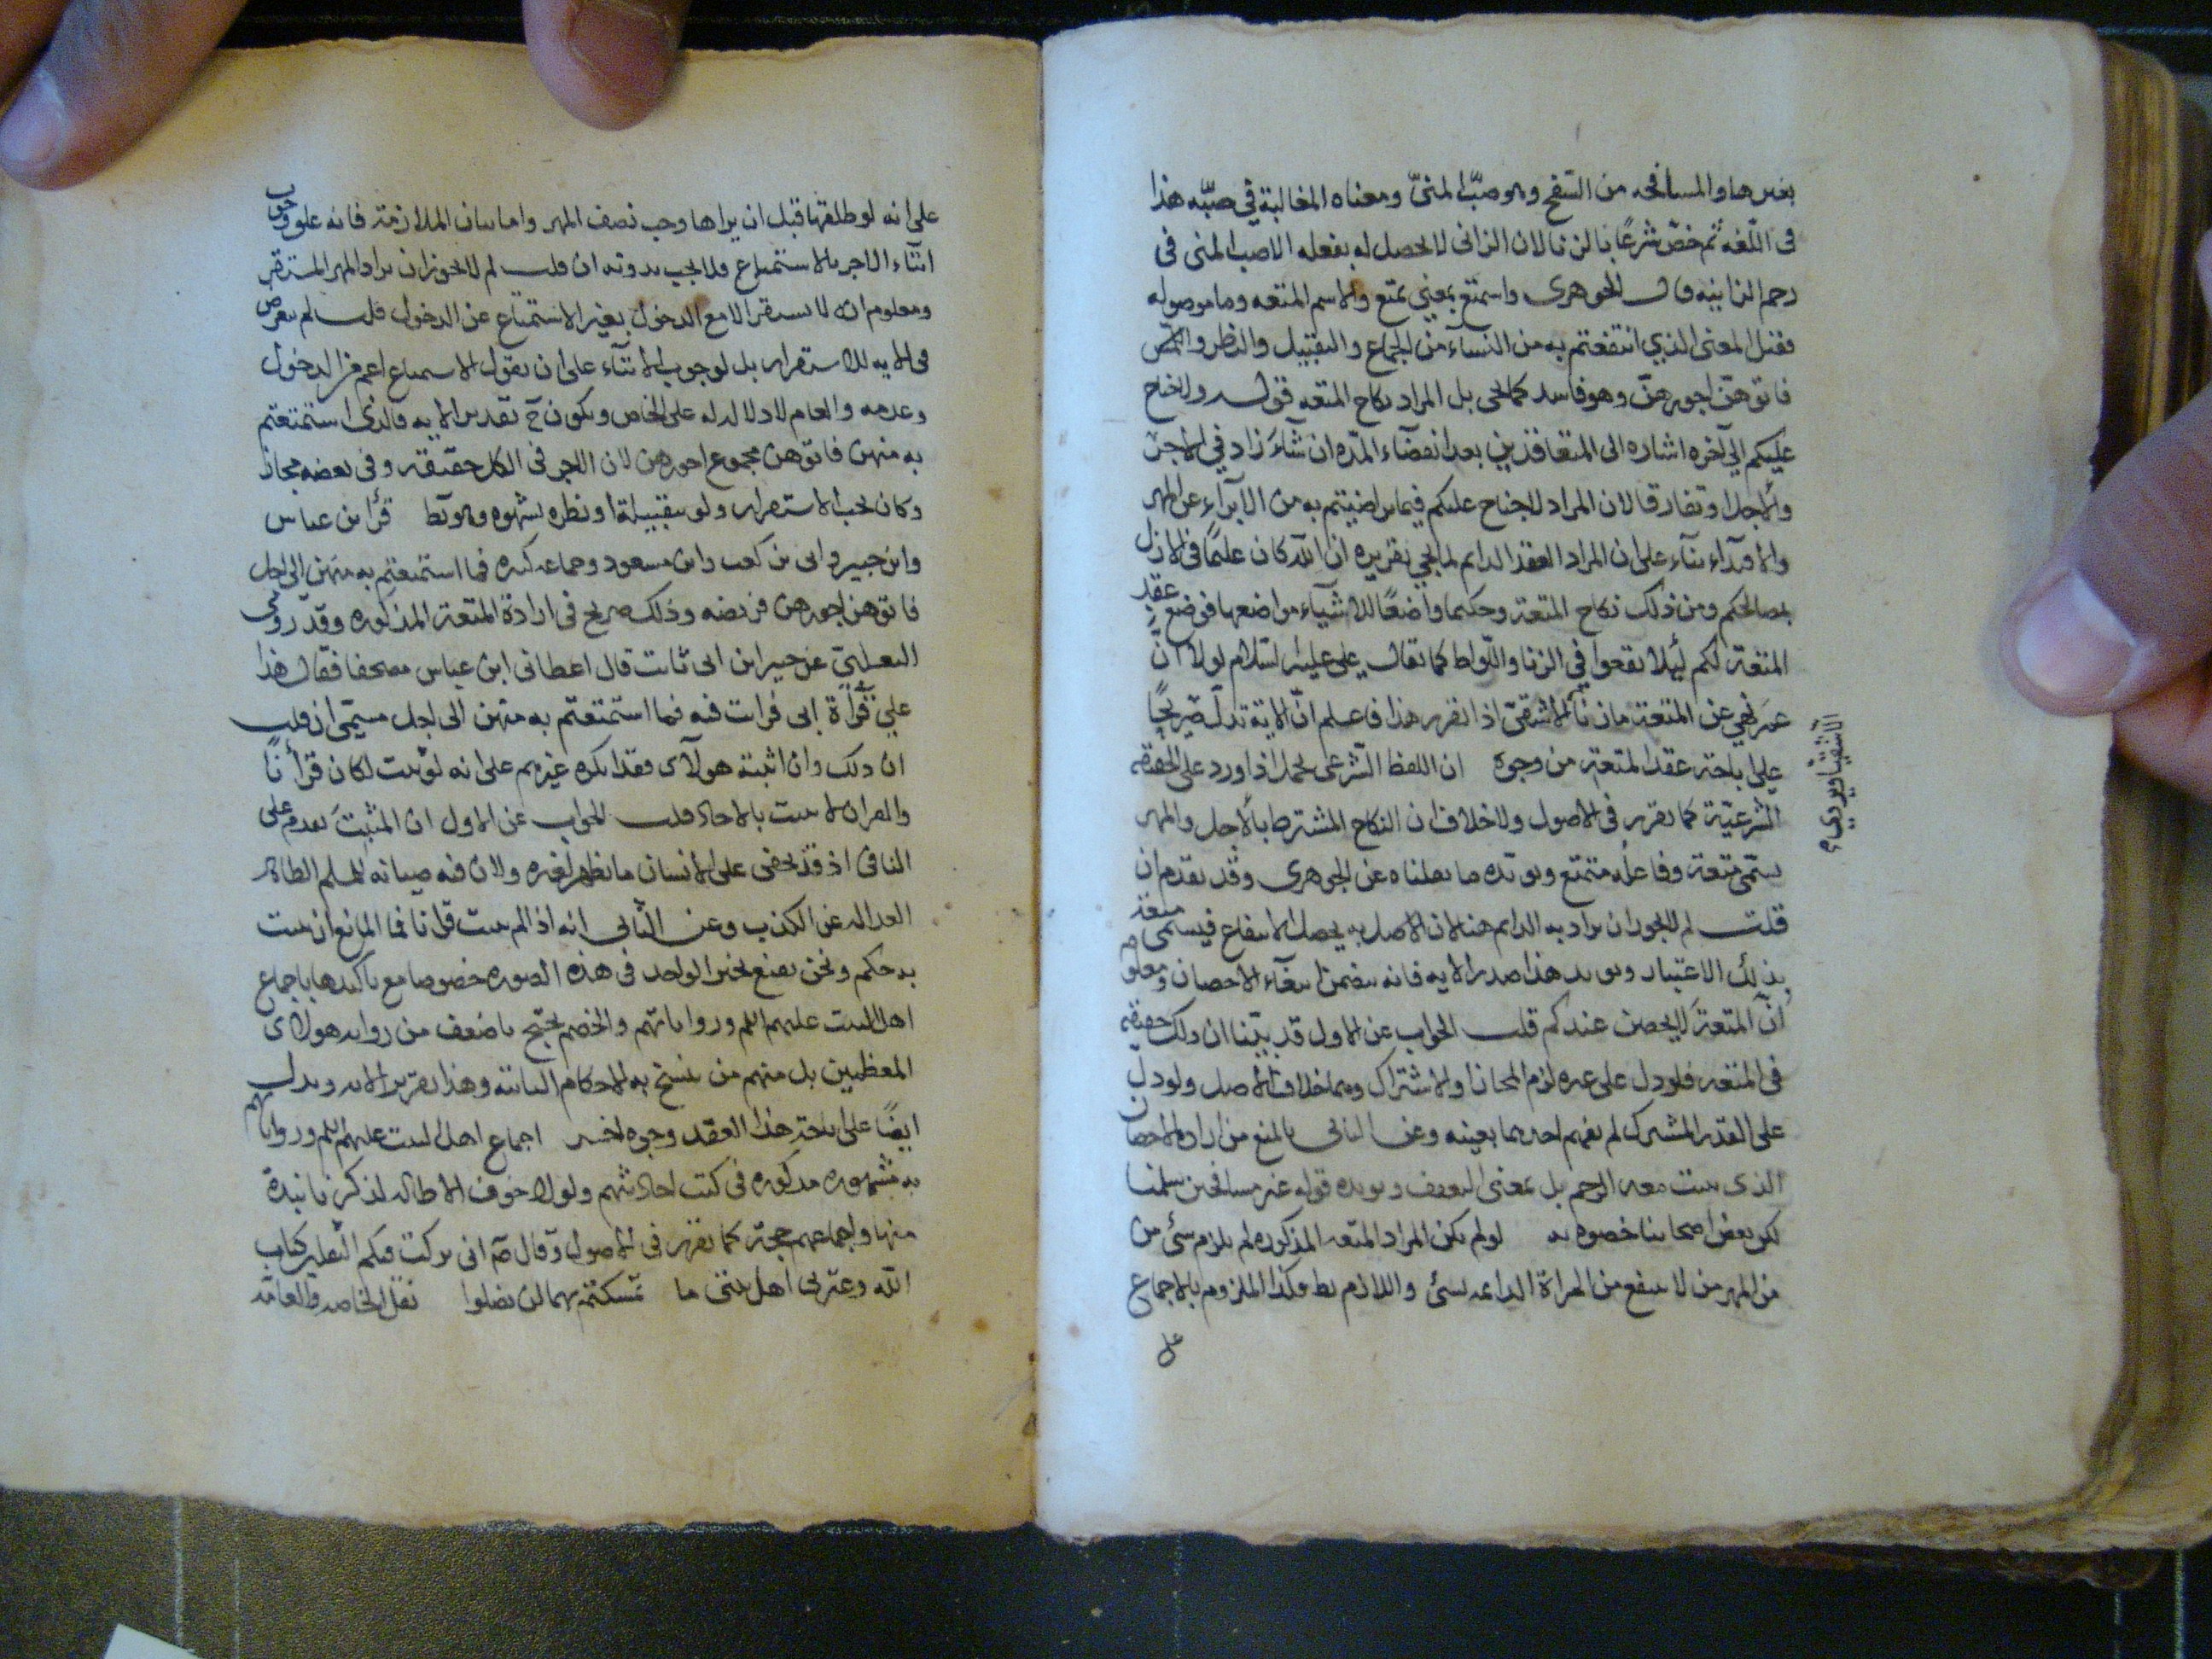 بغيرها والمسافحه من السّفح وهو صبّ المنىّ ومعناه المغالبة في صبّه هذا
فى اللّغه ثم خصّ شرعًا بالزنا لان الزانى لا يحصل له بفعله الا صب المنى فى
رحم الزانيه قال الجوهرى واستمتع بمعنى تمتع والاسم المتعه وما موصوله
فقيل المعنى الذي انتفعتم به من النسآء من الجماع والتقبيل والنظر واللمس
فاتوهنّ اجورهنّ وهو فاسد كما يجى بل المراد نكاح المتعه قوله ولا جناح
عليكم الي آخره اشاره الى المتعاقدين بعد انقضاء المدّه ان شآءَ زاد في الاجر
والاجل او تفارقا لان المراد لا جناح عليكم فيما تراضيتم به من الابرآء عن المهر
والافتدآء بنآء على ان المراد العقد الدايم لما يجي تقريره ان اللّه كان عليمًا فى الازل
بمصالحكم ومن ذلك نكاح المتعة وحكيما واضعًا للاشيآء مواضعها فوضع عقد
المتعة لكم لئلا يقعوا في الزنا واللّواط كما يقال على عليه السّلام لولا انّ
عمر نهي عن المتعة ما زنا الا شقىّ اذا تقرر هذا فاعلم انّ الاية تدلّ صريحًا
على اباحة عقد المتعة من وجوه ان اللفظ الشّرعى يحمل اذا ورد على الحقيقه
الشرعيّة كما تقرر فى الاصول ولا خلاف ان النكاح المشترط بالاجل والمهر
يسمّى متعة وفاعله متمتع ويويّده ما نقلناه عن الجوهرى وقد تقدم ان
قلت لم لا يجوز ان يراد به الدايم هنا لان الاصل به يحصل الانتفاع فيسمى متعة
بذلك الاعتبار ويويد هذا صدر الايه فانه يتضمن ابتغآء الاحصان ومعلوم
أنّ المتعةَ لا يحصن عندكم قلت الجواب عن الاول قد بيّنا ان ذلك حقيقه
فى المتعه فلو دل على غيره لزم المجاز او الاشتراك وهما خلاف الاصل ولو دل
على القدر المشترك لم يفهم احدهما بعينه وعن الثانى بالمنع من ارادة الاحصان
الذى يثبت معه الرجم بل بمعنى التعفف ويويده قوله غير مسافحين سلمنا
لكن بعض اصحابنا خصوه به لو لم يكن المراد المتعه المذكوره لم يلزم شئ من
من المهر من لا ينتفع من المراة الدايمه بشئ واللازم بط وكذا الملزوم بالاجماع
على
على انه لو طلقها قبل ان يراها وجب نصف المهر واما بيان الملازمة فانه علق وجوب
ايتآء الاجر بالاستمتاع فلا يجب بدونه ان قلت لم لا يجوز ان يراد المهر المستقر
ومعلوم انه لا يستقر الا مع الدخول بغير الاستمتاع عن الدخول قلت لم يتعرض
فى الايه للاستقرار بل لوجوب الايتآء على ان نقول الاستمتاع اعم من الدخول
وعدمه والعام لا دلالة له على الخاص ويكون ح تقدير الايه فالذى استمتعتم
به منهن فاتوهن مجموع اجورهن لان الاجر فى الكل حقيقة وفى بعضه مجاز
وكان يجب الاستقرار ولو بتقبيلة او نظره بشهوه وهو بط قرأ ابن عباس
وابن جبير وابى بن كعب وابن مسعود وجماعه كثيره فما استمتعتم به منهن الى اجل
فاتوهن اجورهن فريضه وذلك صريح فى ارادة المتعة المذكوره وقد روى
الثعلبىّ عن حبيب ابن ابى ثابت قال اعطانى ابن عباس مصحفا فقال هذا
على قرأة ابى فرات فيه فما استمتعتم به منهن الى اجل مسمّى ان قلت
ان ذلك وان اثبته هولآى فقد انكره غيرهم على انه لو ثبت لكان قرأنًا
والقران لا يثبت بالاحاد قلت الجواب عن الاول ان المثبتَ يقدم على
النافى اذ قد يخفى على الانسان ما يظهر لغيره ولان فيه صيانه للمسلم الظاهر
العداله عن الكذب وعن الثانى انه اذا لم يثبت قرانا فما المانع ان يثبت
به حكم ونحن نقنع بخبر الواحد فى هذه الصوره خصوصا مع تاكيدها باجماع
اهل البيت عليهم السلم ورواياتهم والخصم يحتج باضعف من روايه هولاى
المعظمين بل منهم من ينسخ به الاحكام الثابته وهذا تقرير الايه ويدل
ايضًا على اباحة هذا العقد وجوه اخر اجماع اهل البيت عليهم السلم ورواياتهم
به مشهوره مذكوره فى كتب احاديثهم ولولا خوف الاطاله لذكرنا نبذة
منها واجماعهم حجة كما تقرر فى الاصول وقال صۤ انى تركت فيكم الثقلين كتاب
اللّه وعترتى اهل بيتى ما تمسكتم بهما لن تضلوا نقل الخاصه والعامّه